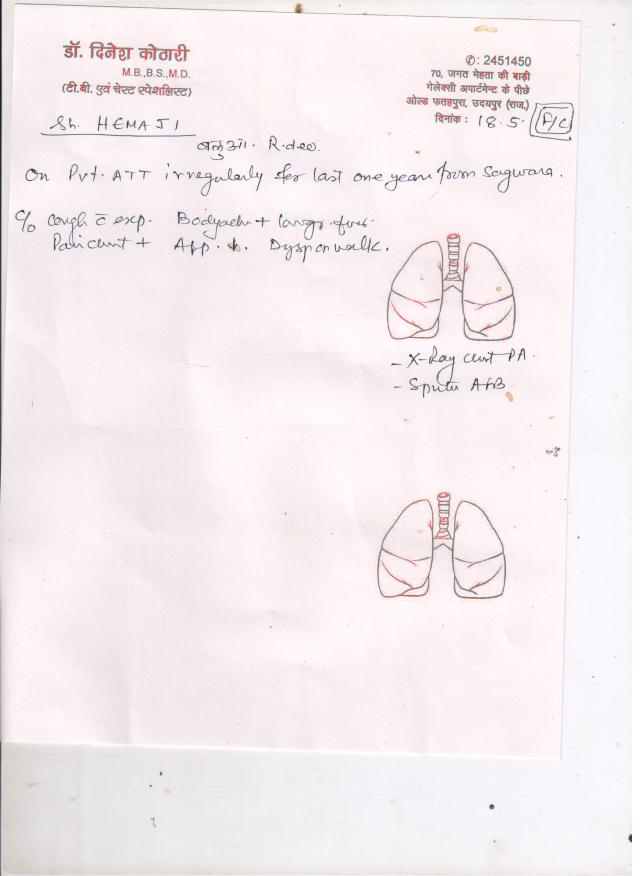 डॉ. दिनेश कोठारी
M.B.,B.S.,M.D.
(टी.बी. एवं चेस्ट स्पेशलिस्ट)
✆: 2451450
70, जगत मेहता की बाड़ी
गेलेक्सी अपार्टमेन्ट के पीछे
ओल्ड फतहपुरा, उदयपुर (राज.)
दिनांक : 18.5. P/C
Sh. HEMAJI
On Pvt. ATT irregularly for last one year from Sagwara.
C/o Cough c̄ exp. Bodyach +
Pain +  App. ↓. Dysp on walk.
- X-Ray PA.
- AFB